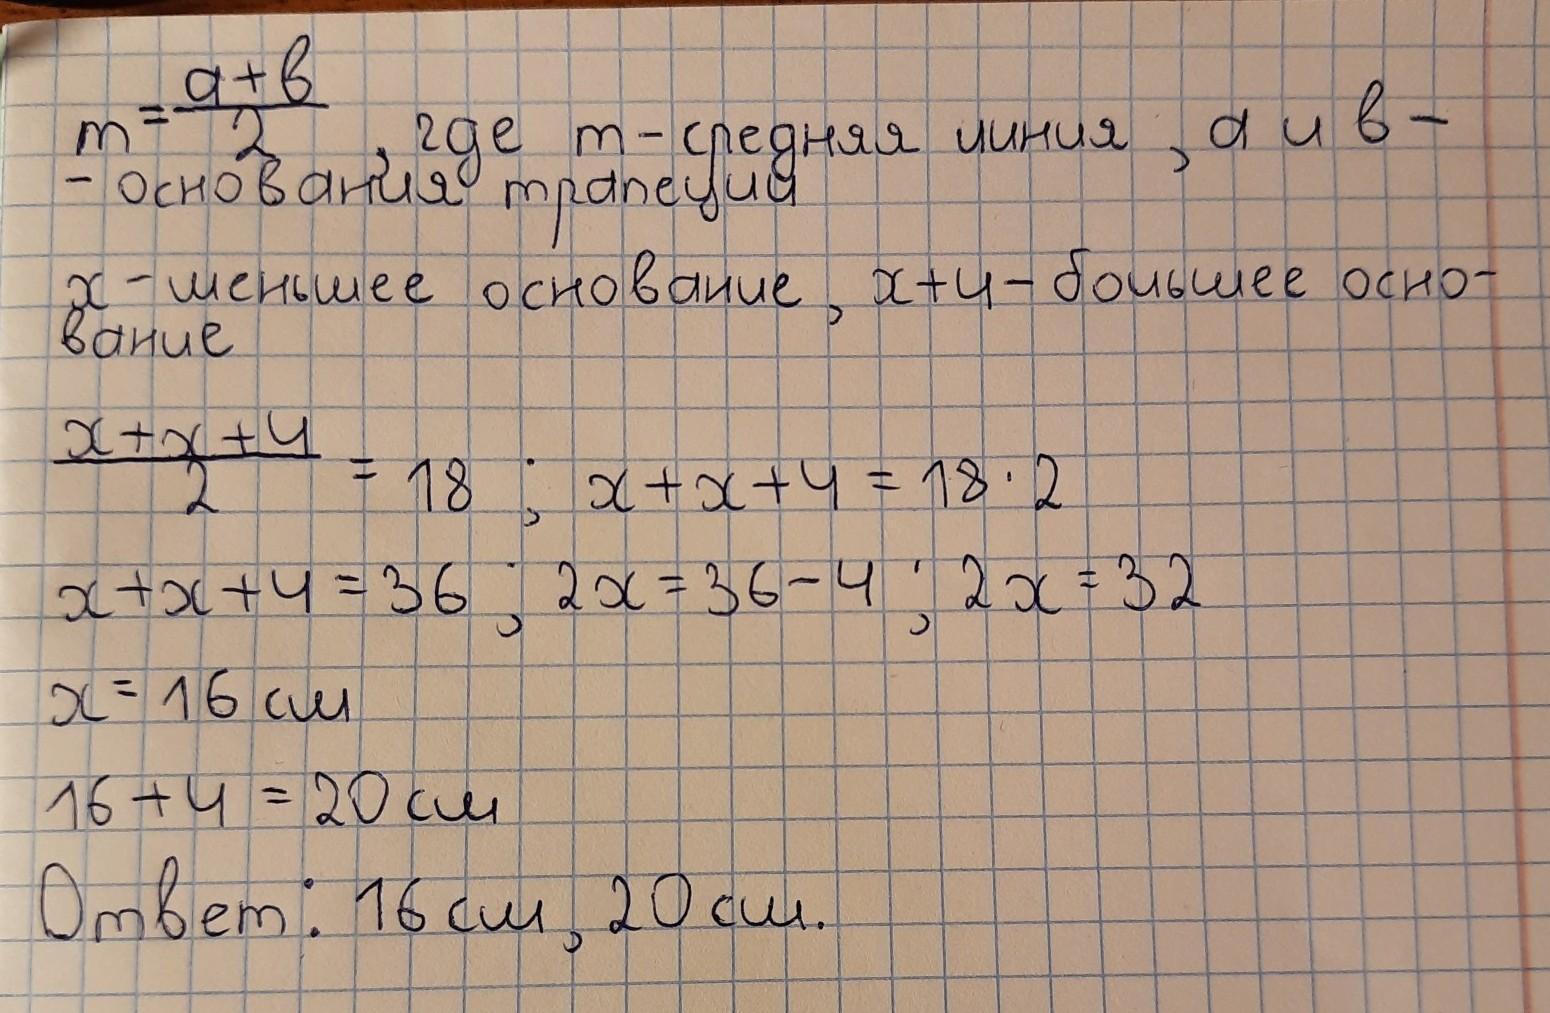 m = a+в/2, где m-средняя линия, а и в-
-основания трапеции
х-меньшее основание, х+4-большее осно-
вание
х+х+4/2 = 18 ; х+х+4=18·2
х+х+4=36 ; 2х=36-4 ; 2х=32
х=16 см
16+4=20см
Ответ: 16см, 20см.